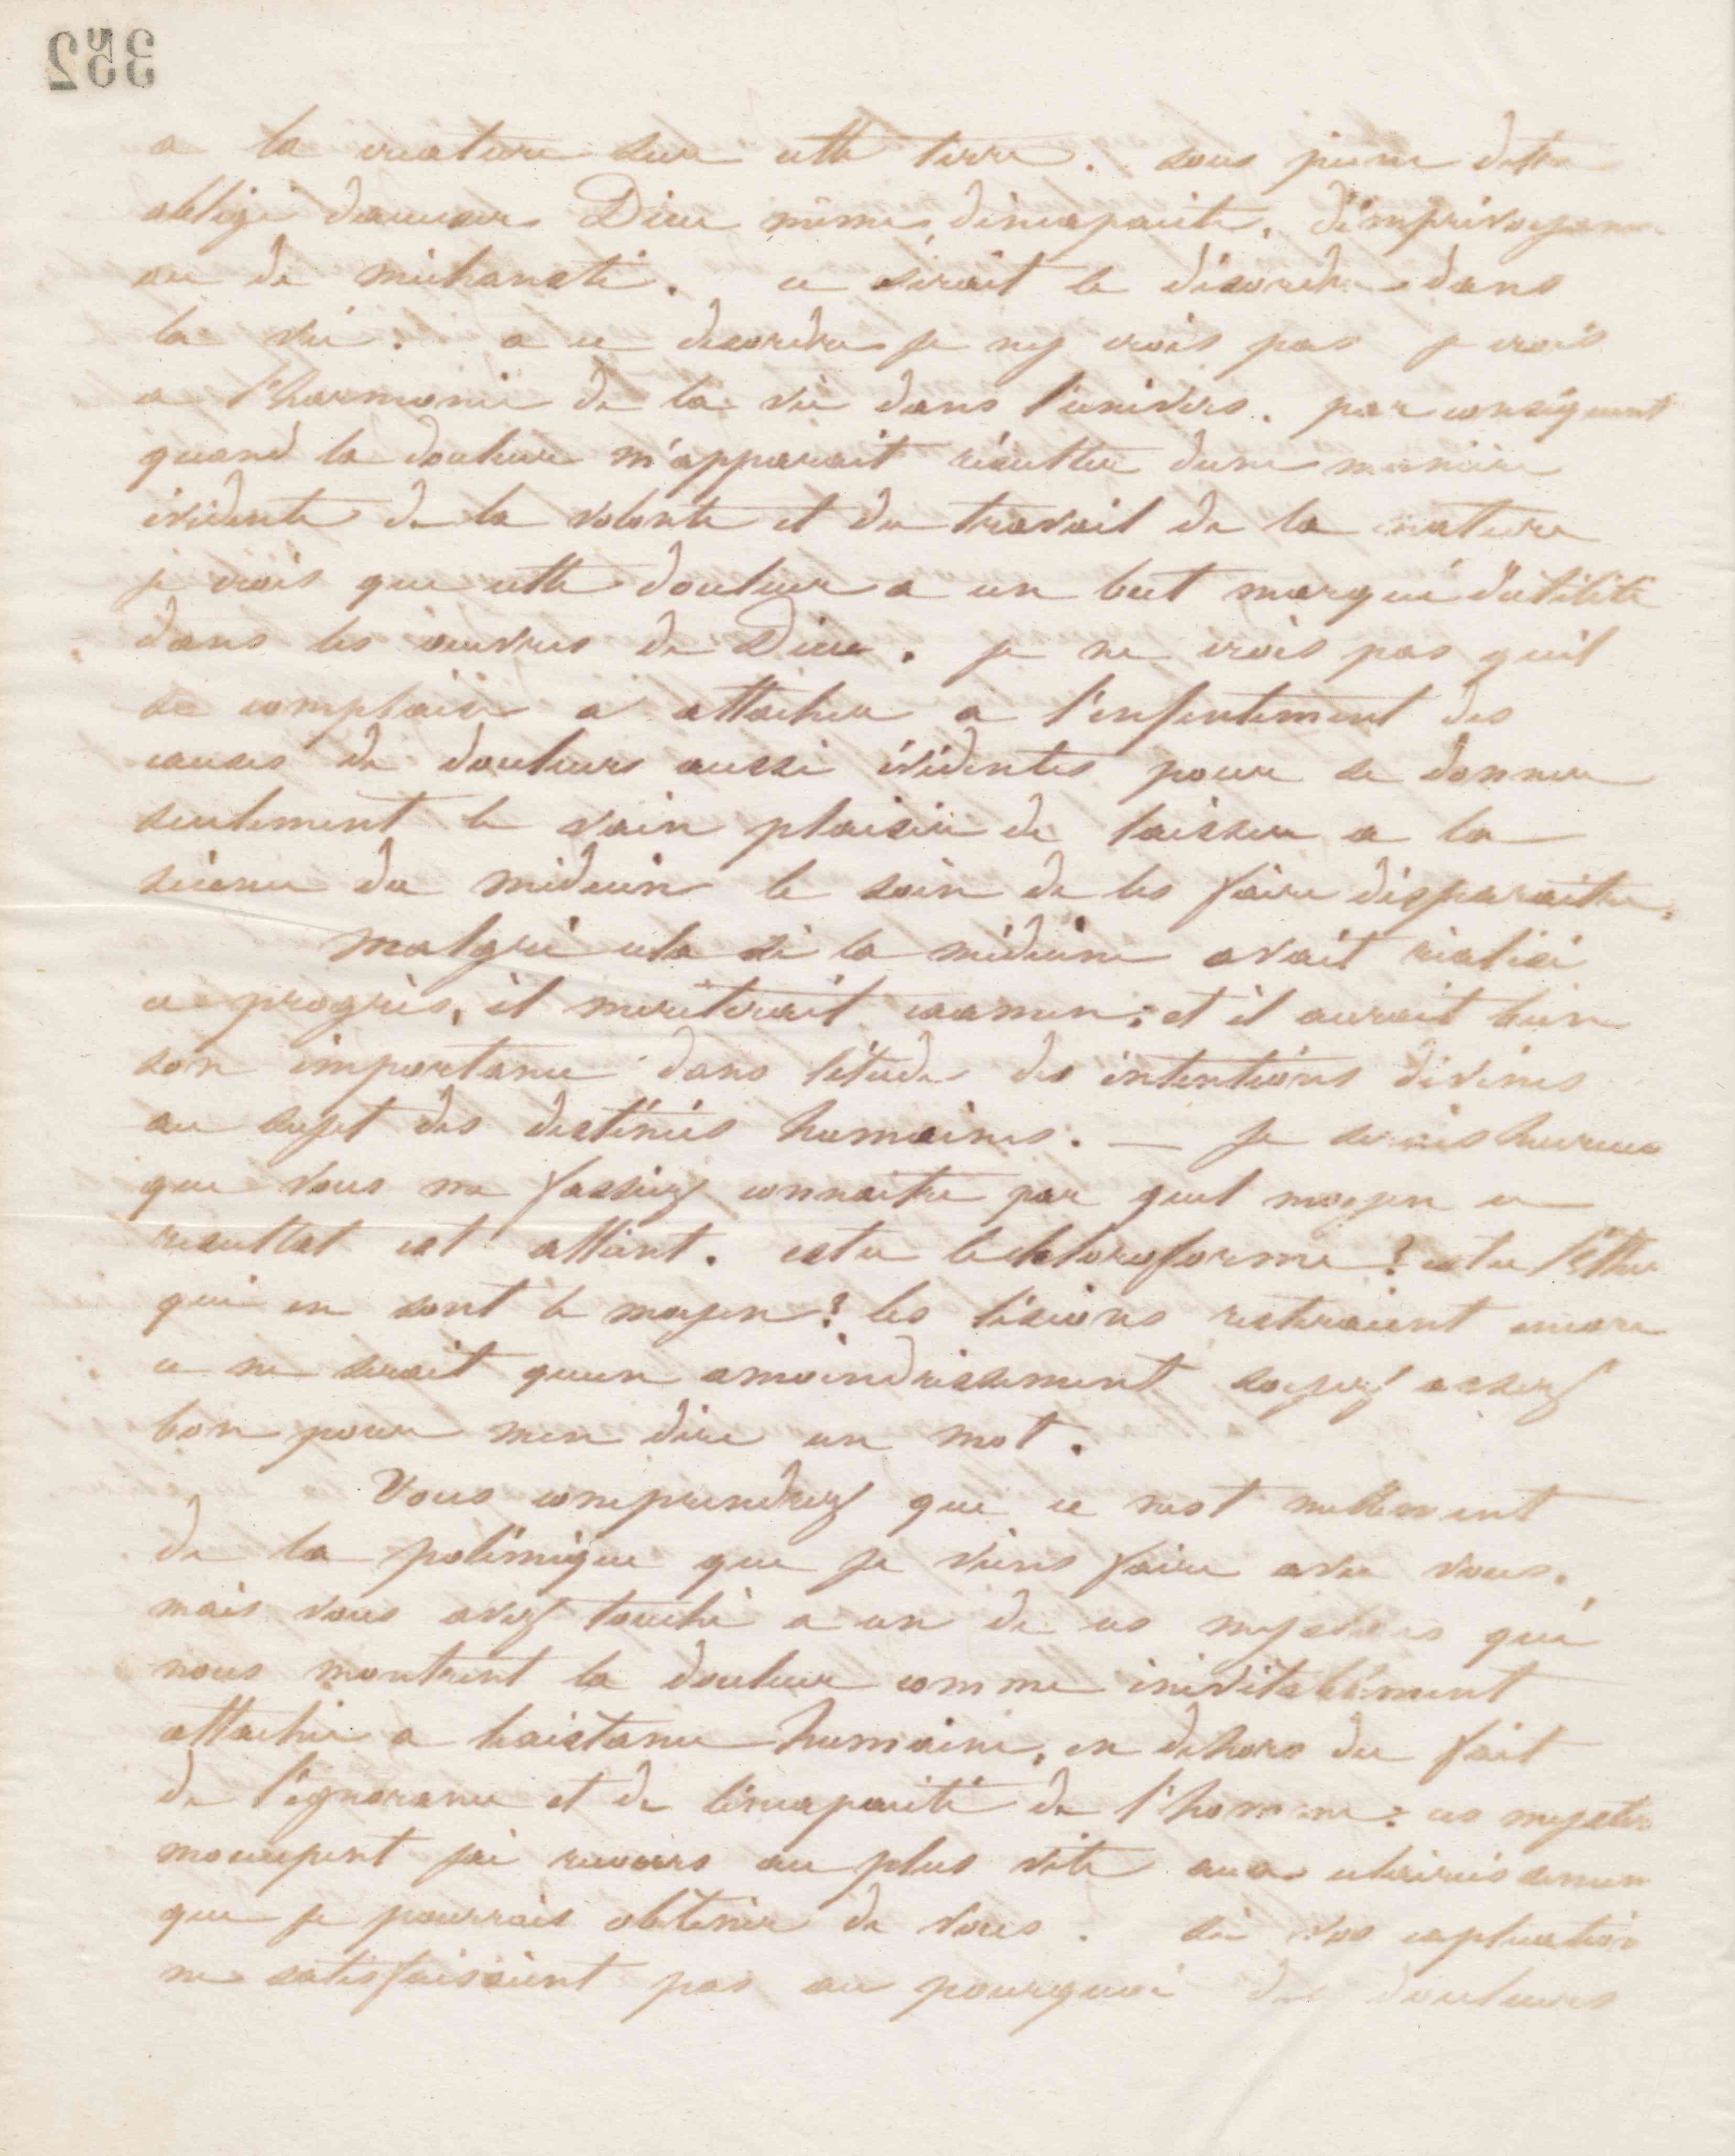 352
a la creature sur cette terre. sous peine detre
obligé daccuser Dieu même, dincapacité, d'imprévoyance
ou de méchanceté. ce serait le désordre dans
la vie. a ce desordre je ny crois pas je crois
a l'harmonie de la vie dans l'univers. par conséquent
quand la douleur m'apparait résulter dune manière
évidente de la volonté et du travail de la nature
je crois que cette douleur a un but marqué d'utilité
dans les œuvres de Dieu. je ne crois pas quil
se complaise a attacher a l'enfentement des
causes de douleurs aussi évidentes pour se donner
seulement le vain plaisir de laisser a la
science du médecin le soin de les faire disparaitre.
Malgré cela si la médecine avait réalisé
ce progrès, il meriterait examen; et il aurait bien
son importance dans l'étude des intentions divines
au sujet des destinées humaines. — je serais heureux
que vous me fassiez connaitre par quel moyen ce
resultat est attient. est ce le chloroforme? est ce l'éther
qui en sont le moyen? les lésions resteraient encore
ce ne serait quun amoindrissement soyez assez
bon pour men dire un mot.
Vous comprendrez que ce nest nullement
de la polémique que je viens faire avec vous.
mais vous avez touché a un de ces mystères qui
nous montrent la douleur comme inévitablement
attachée a lexistance humaine, en dehors du fait
de l'ignorance et de l'incapacité de l'homme: ces mystères
moccupent jai recours au plus vite aux eclaircissemens
que je pourrais obtenir de vous. si vos explications
ne satisfaisaient pas au pourquoi des douleurs